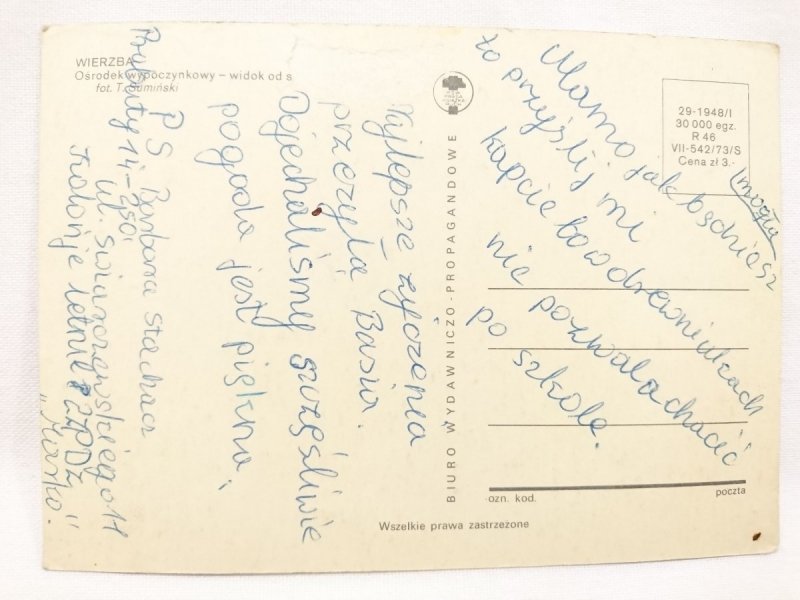 WIERZBA
Ośrodek wypoczynkowy – widok od s
fot. T. Sumiński
Najlepsze życzenia
przesyła Basia.
Dojechaliśmy szczęśliwie
pogoda jest piękna,
P S Barbara Stachacz
Prabuty 14-250
ul. Świerczewskiego 11
Kolonje letnie ZZPDz
"Miasko".
BIURO WYDAWNICZO-PROPAGANDOWE
29-1948/I
30 000 egz.
R 46
VII-542/73/S
Cena zł 3.-
Mamo jak będziesz mogła
to przyślij mi
kapcie bo w drewniakach
nie pozwalą chodzić
po szkole.
ozn. kod.
poczta
Wszelkie prawa zastrzeżone